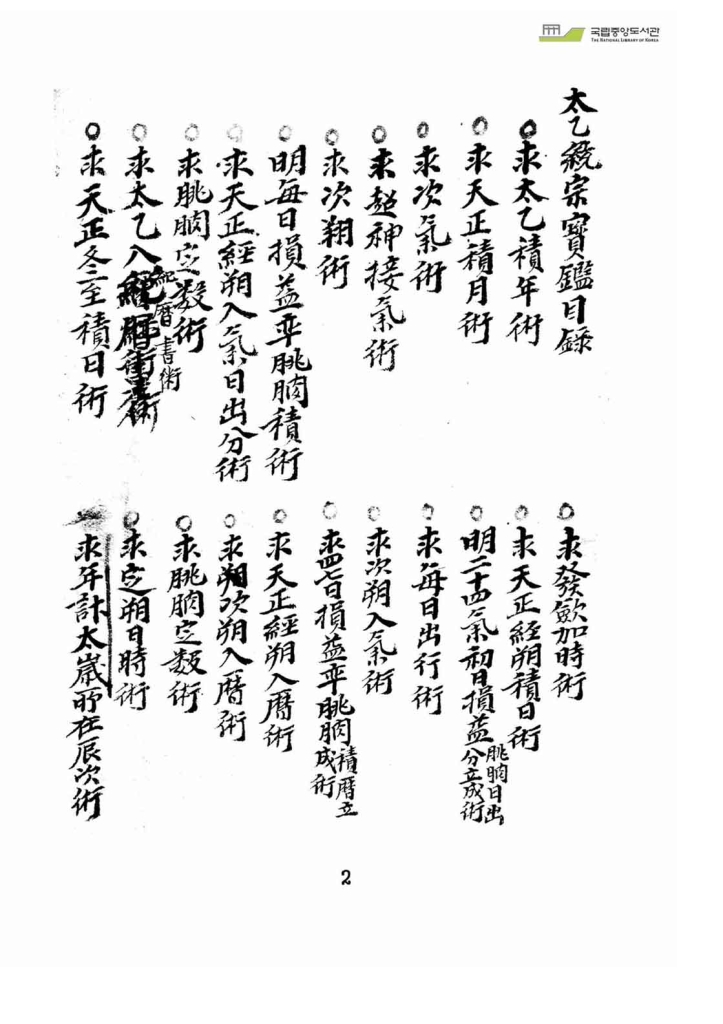 국립중앙도서관
THE NATIONAL LIBRARY OF KOREA
太乙統宗寶鑑目錄
○求太乙積年術
○求天正積月術
○求次氣術
○求超神接氣術
○求次翔術
○明每日損益率朓朒積術
○求天正經朔入氣日出分術
○求朓朒定数術
○求太乙入紀曆書術
○求天正冬至積日術
○求發斂加時術
○求天正經朔積日術
○明二十四氣初日損益朓朒日出分立成術
○求每日出行術
○求次朔入氣術
○求四七日損益率朓朒積曆立成術
○求天正經朔入曆術
○求朔次朔入曆術
○求朓朒定数術
○求定朔日時術
求年計太歲所在辰次術
2